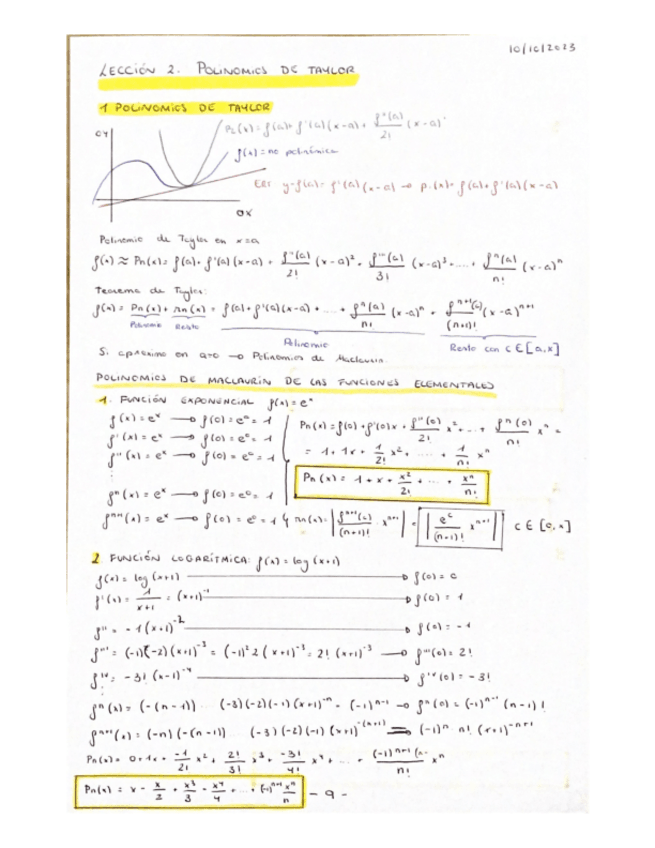 10/10/2023
LECCIÓN 2. POLINOMIOS DE TAYLOR
1 POLINOMIOS DE TAYLOR
OY
P₂(x) = f(a) + f'(a)(x-a) + f''(a)/2! (x-a)²
f(x) = no polinómica
y-f(a) = f'(a)(x-a) → p₁(x) = f(a) + f'(a)(x-a)
OX
Polinomio de Taylor en x=a
f(x) ≈ Pn(x) = f(a) + f'(a)(x-a) + f''(a)/2! (x-a)² + f'''(a)/3! (x-a)³ + .... + fⁿ(a)/n! (x-a)ⁿ
Teorema de Taylor:
f(x) = Pn(x) + rn(x) = f(a) + f'(a)(x-a) + ... + fⁿ(a)/n! (x-a)ⁿ + fⁿ⁺¹(c)/(n+1)! (x-a)ⁿ⁺¹
Polinomio Resto
Polinomio
Resto con c ∈ [a,x]
Si aproximo en a=0 → Polinomios de Maclaurin.
POLINOMIOS DE MACLAURIN DE LAS FUNCIONES ELEMENTALES
1. FUNCIÓN EXPONENCIAL f(x) = eˣ
f(x) = eˣ → f(0) = e⁰ = 1
f'(x) = eˣ → f(0) = e⁰ = 1
f''(x) = eˣ → f(0) = e⁰ = 1
Pn(x) = f(0) + f'(0)x + f''(0)/2! x² + ... + fⁿ(0)/n! xⁿ =
= 1 + 1x + 1/2! x² + .... + 1/n! xⁿ
Pn(x) = 1 + x + x²/2! + ... + xⁿ/n!
fⁿ(x) = eˣ → f(0) = e⁰ = 1
fⁿ⁺¹(x) = eˣ → f(0) = e⁰ = 1 rn(x) = |fⁿ⁺¹(c)/(n+1)! xⁿ⁺¹| = |eᶜ/(n+1)! xⁿ⁺¹| c ∈ [0,x]
2 FUNCIÓN LOGARÍTMICA: f(x) = log (x+1)
f(x) = log (x+1) → f(0) = 0
f'(x) = 1/(x+1) = (x+1)⁻¹ → f'(0) = 1
f'' = -1(x+1)⁻² → f(0) = -1
f''' = (-1)(-2)(x+1)⁻³ = (-1)² 2 (x+1)⁻³ = 2! (x+1)⁻³ → f'''(0) = 2!
f'ᵛ = -3! (x-1)⁻⁴ → f'ᵛ(0) = -3!
fⁿ(x) = (-(n-1)) ... (-3)(-2)(-1)(x+1)⁻ⁿ = (-1)ⁿ⁻¹ → fⁿ(0) = (-1)ⁿ⁻¹ (n-1)!
fⁿ⁺¹(x) = (-n)(-(n-1)) ... (-3)(-2)(-1)(x+1)⁻⁽ⁿ⁺¹⁾ ⟹ (-1)ⁿ n! (x+1)⁻ⁿ⁺¹
Pn(x) = 0 + 1x + -1/2! x² + 2!/3! x³ + -3!/4! x⁴ + ... + (-1)ⁿ⁺¹ (n-/n! xⁿ
Pn(x) = x - x/2 + x³/3 - x⁴/4 + ... + (-1)ⁿ⁺¹ xⁿ/n
- 9 -